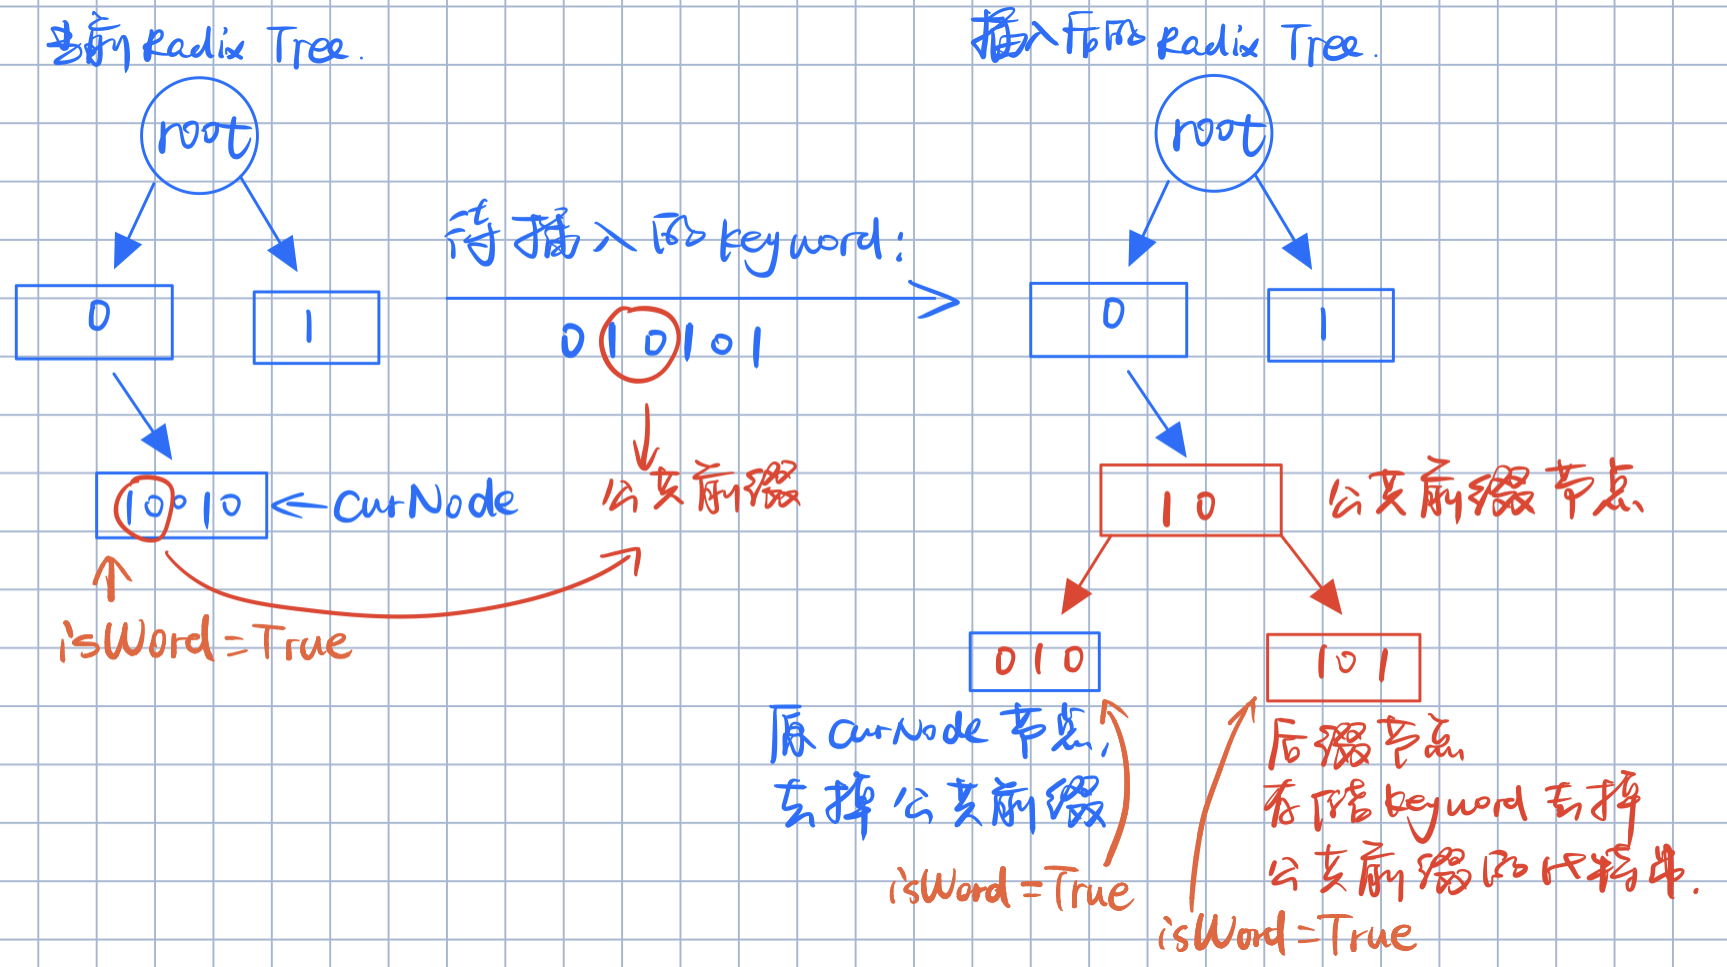 当前Radix Tree.
root
0
1
10010
←curNode
isWord=True
待插入的keyword:
010101
公共前缀
插入后的Radix Tree.
root
0
1
10
公共前缀节点
010
101
原curNode节点,
去掉公共前缀
isWord=True
后缀节点
存储keyword去掉
公共前缀的代特串.
isWord=True